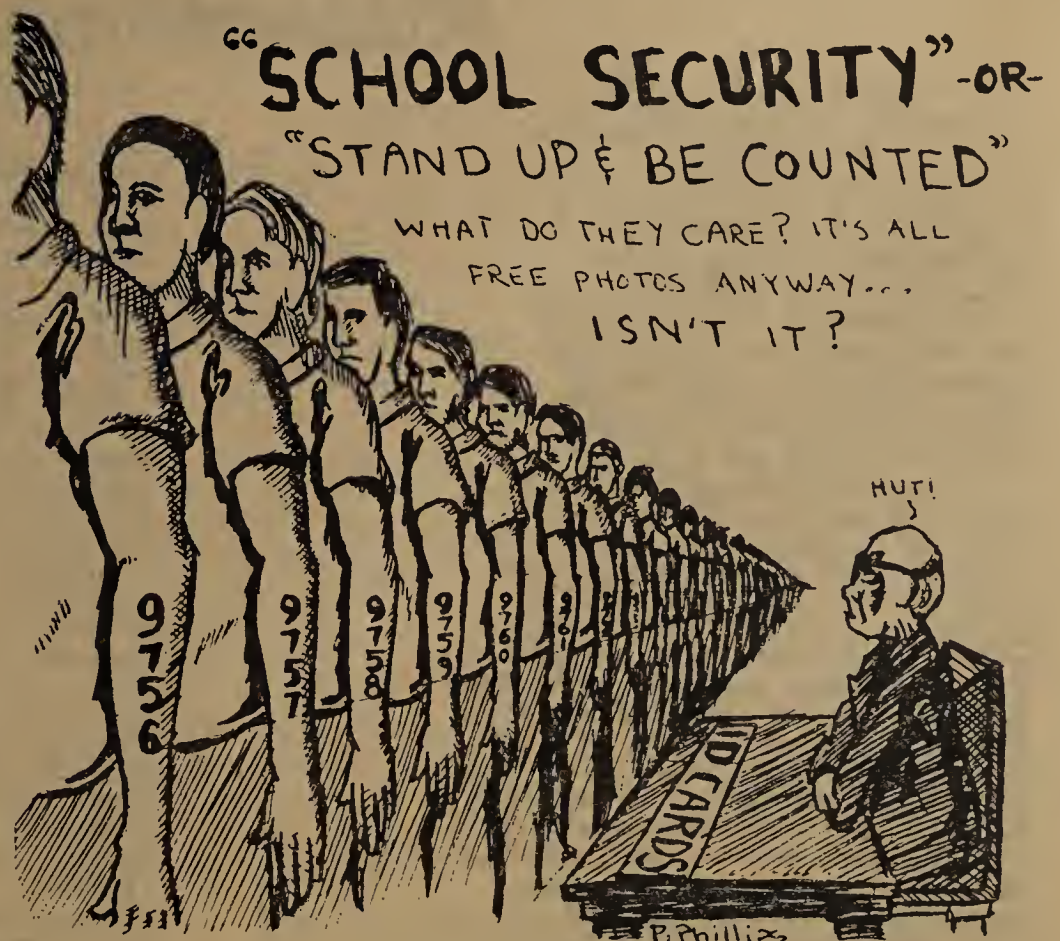 “SCHOOL SECURITY” -OR-
“STAND UP & BE COUNTED”
WHAT DO THEY CARE? IT'S ALL
FREE PHOTOS ANYWAY...
ISN'T IT?
HUT!
9756
9757
9758
9759
9760
961
ID CARDS
P. Phillix